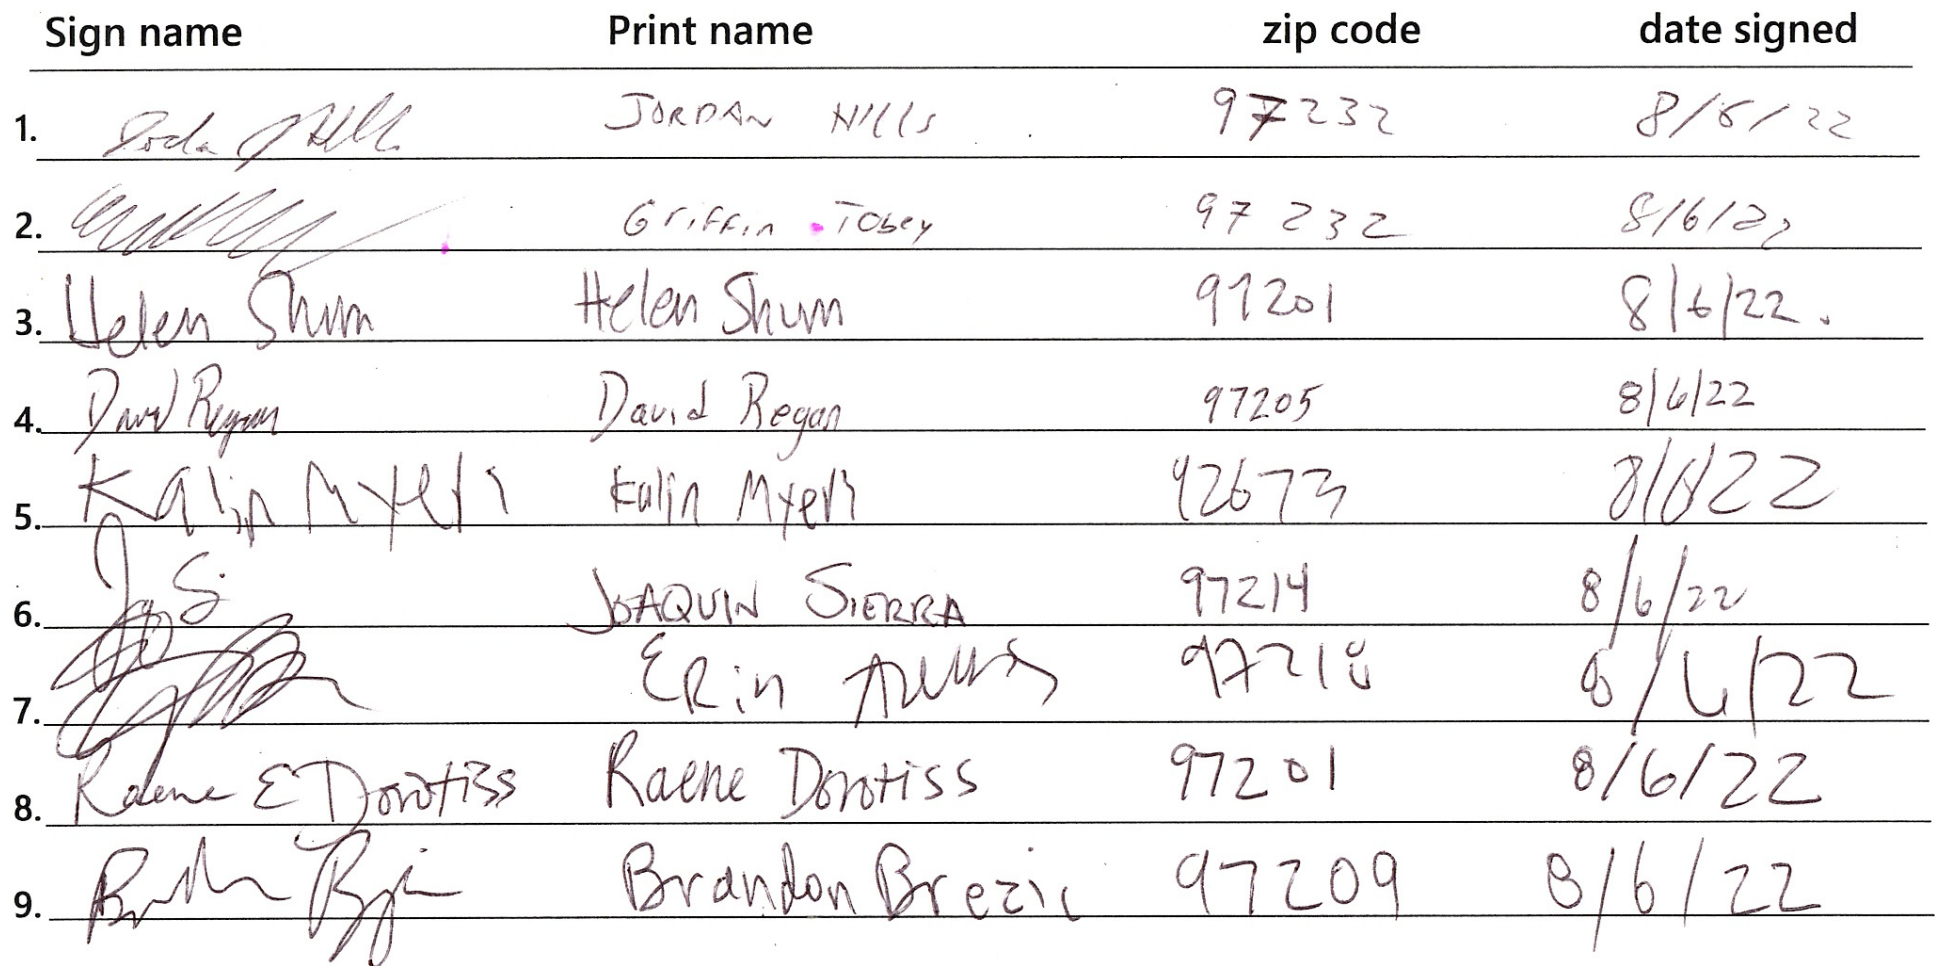 Sign name Print name zip code date signed
1. JORDAN HILLS 97232 8/6/22
2. Griffin Tobey 97232 8/6/22
3. Helen Shum Helen Shum 97201 8/6/22.
4. David Regan David Regan 97205 8/6/22
5. Kalin Myers Kalin Myers 92673 8/6/22
6. JOAQUIN SIERRA 97214 8/6/22
7. ERin 97218 8/6/22
8. Raene E Dorotiss Raene Dorotiss 97201 8/6/22
9. Brandon Brezic 97209 8/6/22